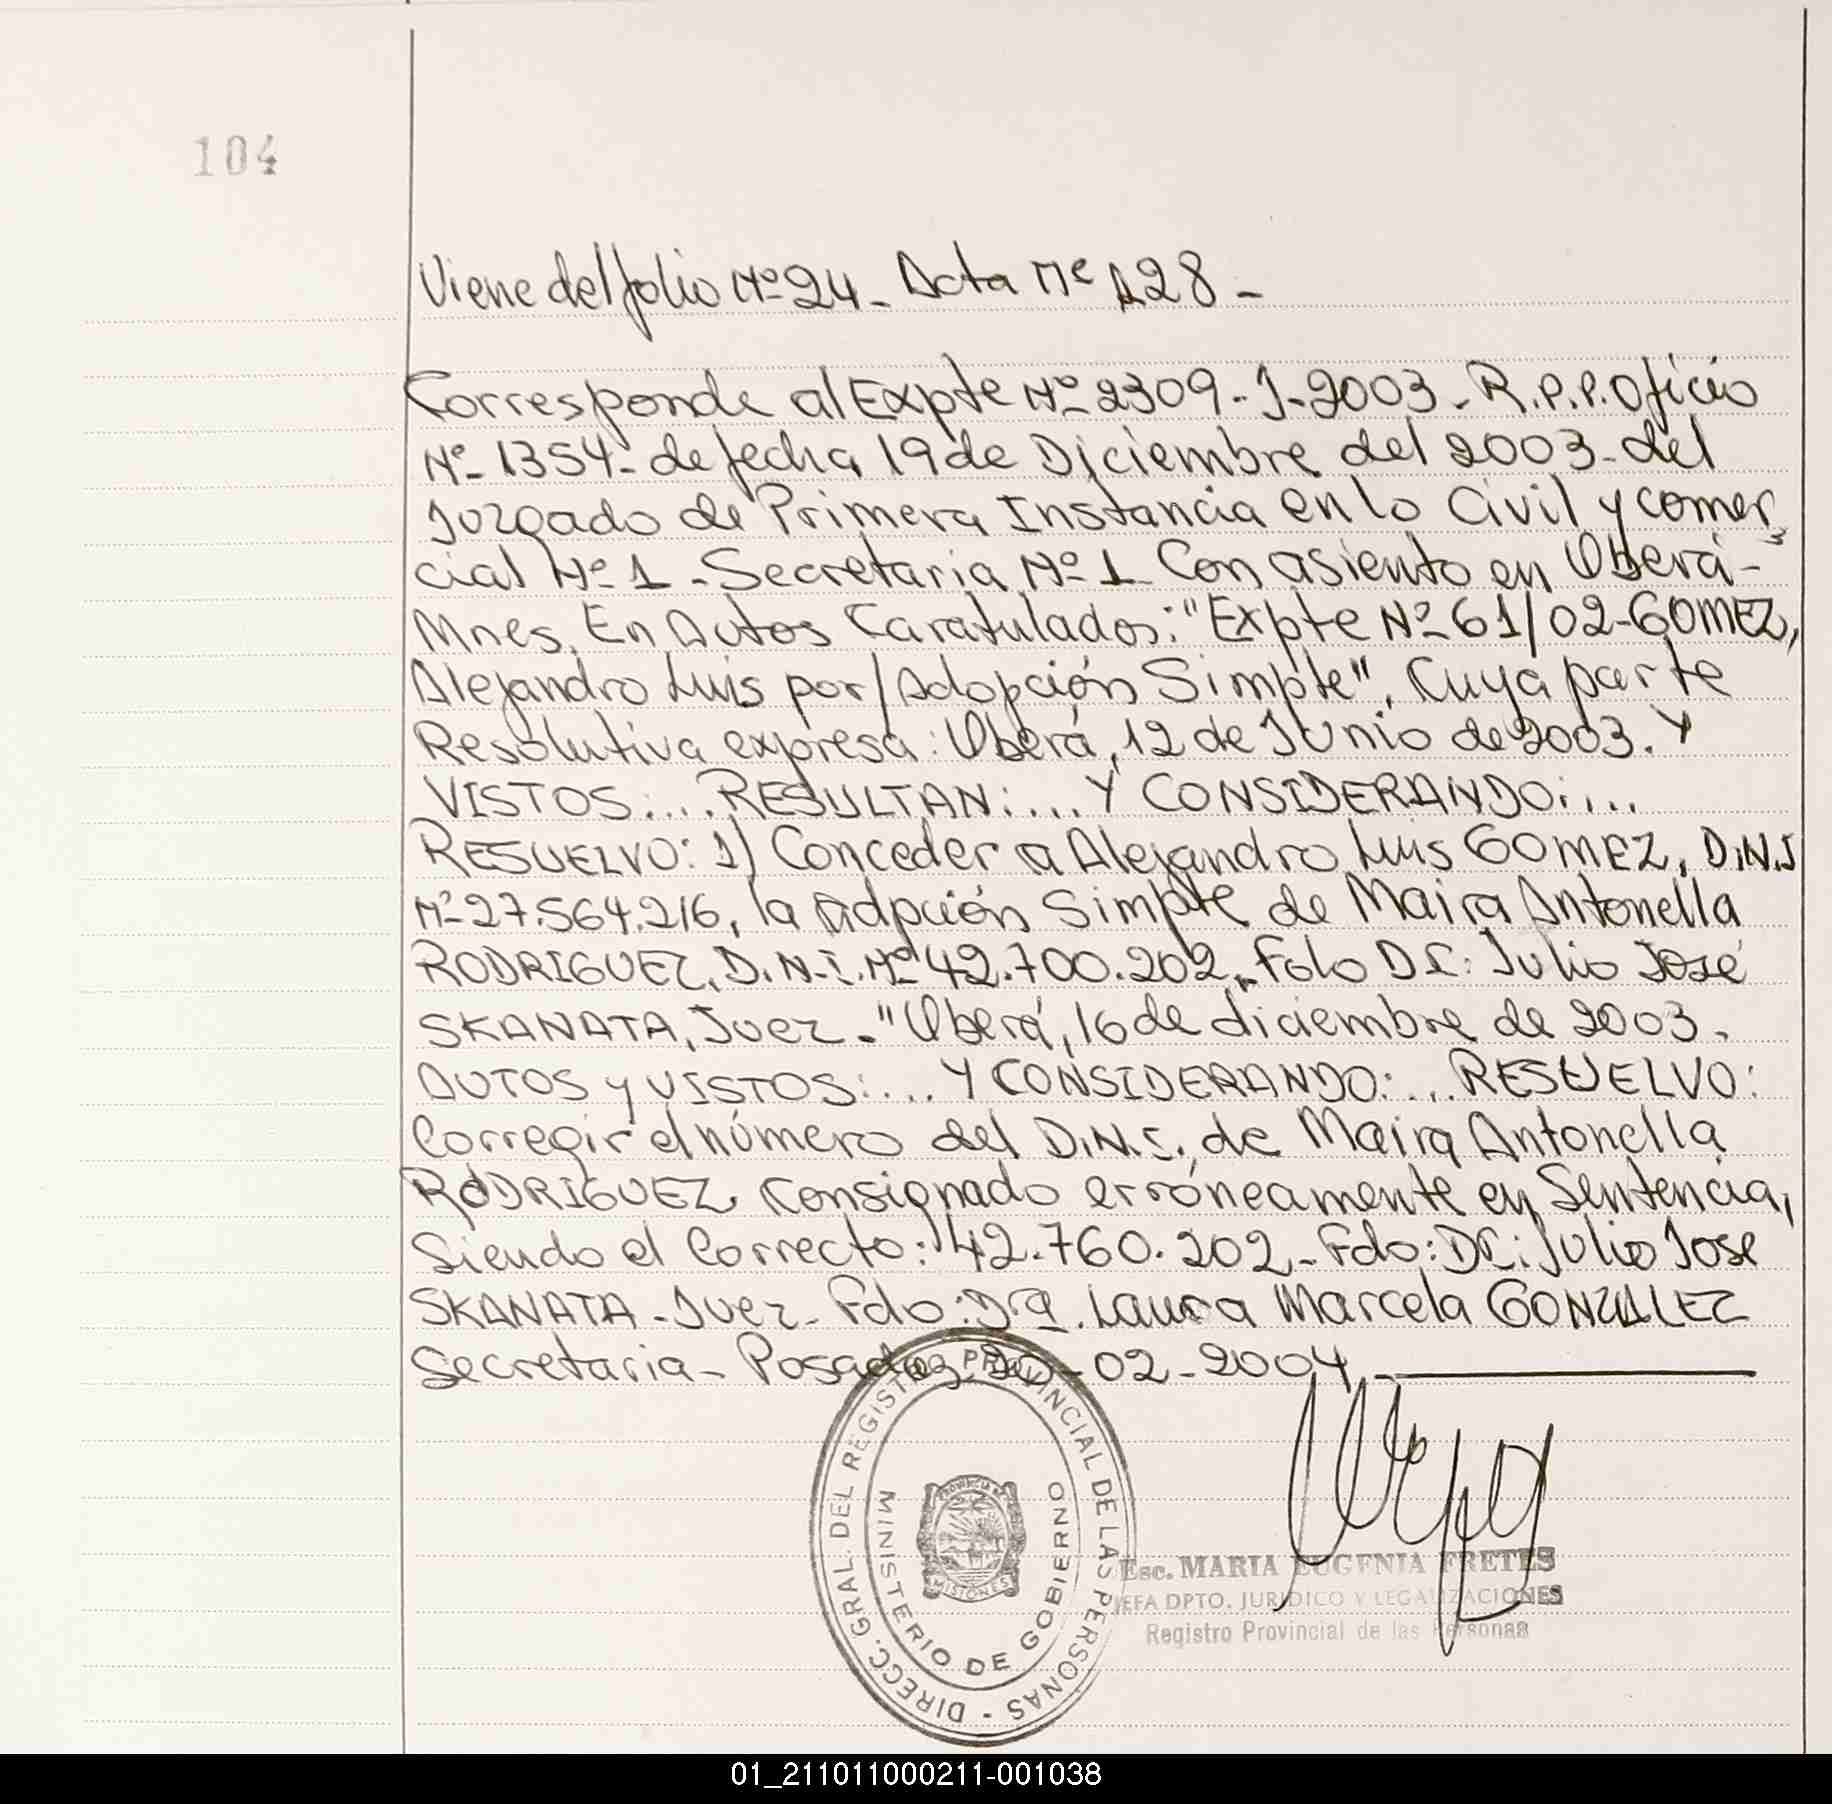 104
Viene del folio Nº 24 - Acta Nº 128 -
Corresponde al Expte Nº 2309-J-2003-R.P.P. Oficio
Nº 1354- de fecha 19 de Diciembre del 2003- del
Juzgado de Primera Instancia en lo Civil y comer
cial Nº 1 - Secretaria Nº 1 Con asiento en Oberá -
Mnes. En Autos Caratulados: "Expte Nº 61/02-GOMEZ,
Alejandro Luis por/Adopción Simple", Cuya parte
Resolutiva expresa: Oberá, 12 de Junio de 2003. Y
VISTOS:... RESULTAN:... Y CONSIDERANDO:...
RESUELVO: 1) Conceder a Alejandro Luis GOMEZ, D.N.I
Nº 27.564.216, la adpción Simple de Maira Antonella
RODRIGUEZ, D.N.I. Nº 42.700.202, Fdo Dr: Julio José
SKANATA, Juez. "Oberá, 16 de diciembre de 2003.
AUTOS y VISTOS:... Y CONSIDERANDO:... RESUELVO:
Corregir el número del D.N.I. de Maira Antonella
RODRIGUEZ, Consignado erróneamente en Sentencia,
Siendo el Correcto: 42.760.202 - Fdo: Dr: Julio Jose
SKANATA - Juez - Fdo: Drª. Laura Marcela GONZALEZ
Secretaria - Posadas, 20-02-2004
DIRECC. GRAL. DEL REGISTRO PROVINCIAL DE LAS PERSONAS -
MINISTERIO DE GOBIERNO
PROVINCIA DE
MISIONES
Esc. MARIA EUGENIA FRETES
JEFA DPTO. JURIDICO Y LEGALIZACIONES
Registro Provincial de las Personas
01_211011000211-001038